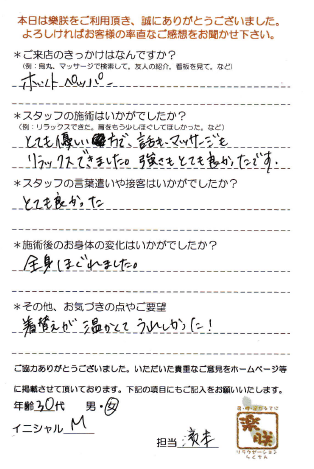 本日は樂朕をご利用頂き、誠にありがとうございました。
よろしければお客様の率直なご感想をお聞かせ下さい。
＊ご来店のきっかけはなんですか？
（例：烏丸、マッサージで検索して。友人の紹介。看板を見て。など）
ホットペッパー
＊スタッフの施術はいかがでしたか？
（例：リラックスできた。肩をもう少しほぐしてほしかった。など）
とても優しい方で、話も、マッサージも
リラックスできました。強さもとても良かったです。
＊スタッフの言葉遣いや接客はいかがでしたか？
とても良かった
＊施術後のお身体の変化はいかがでしたか？
全身ほぐれました。
＊その他、お気づきの点やご要望
着替えが温かくてうれしかった！
ご協力ありがとうございました。いただいた貴重なご意見をホームページ等
に掲載させて頂いております。下記の項目にもご記入をお願いいたします。
年齢30代 男・女
イニシャル M
担当
樂朕
リラクゼーション